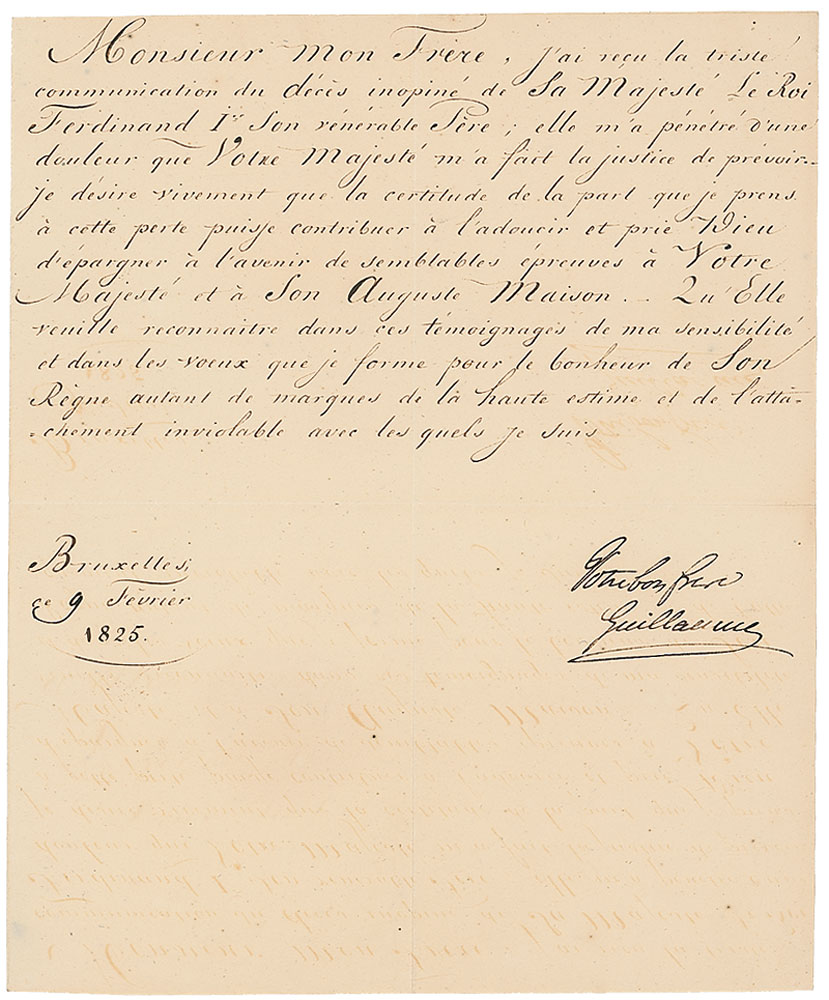 Monsieur mon Frère, j'ai reçu la triste
communication du décès inopiné de Sa Majesté Le Roi
Ferdinand I.er Son vénérable Père; elle m'a pénétré d'une
douleur que Votre Majesté m'a fait la justice de prévoir.-
je désire vivement que la certitude de la part que je prens
à cette perte puisse contribuer à l'adoucir et prie Dieu
d'épargner à l'avenir de semblables épreuves à Votre
Majesté et à Son Auguste Maison. - Qu'Elle
veuille reconnaitre dans ces témoignages de ma sensibilité
et dans les voeux que je forme pour le bonheur de Son
Règne autant de marques de la haute estime et de l'atta-
-chement inviolable avec les quels je suis
Bruxelles,
ce 9 Février
1825.
Votre bon frere
Guillaume